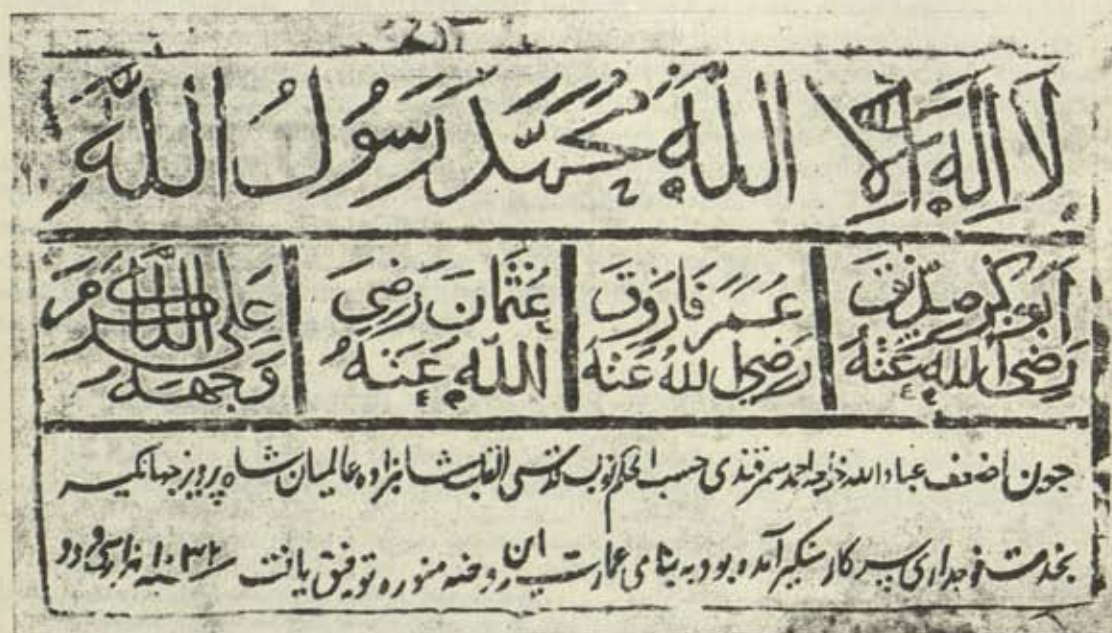 لا اله الا الله محمد رسول الله
ابوبکر صدیق
رضی الله عنه
عمر فاروق
رضی الله عنه
عثمان رضی
الله عنه
علی کرم الله
وجهه
جون اضعف عباد الله خواجه احمد سمرقندی حسب الحکم نواب قدسی القاب شاهزاده عالمیان شاه پرویز جهانکیر
بخدمت فوجداری سرکار آمده بود به بنای عمارت ان روضه منوره توفیق یافت سنه ۱۰۳۲ هزار سی و دو